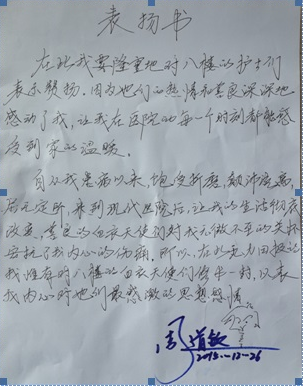 表扬书
在此我要隆重地对八楼的护士们
表示赞扬。因为她们的热情和善良深深地
感动了我,让我在医院的每一个时刻都能感
受到家的温暖。
自从我患病以来,饱受折磨,颠沛流离,
居无定所,来到现代医院后,让我的生活彻底
改变,善良的白衣天使们对我无微不至的关怀
安抚了我内心的伤痛,所以,在此无力回报的
我唯有对八楼的白衣天使们修书一封,以表
我内心对她们最感激的思想感情
2015.-12-26